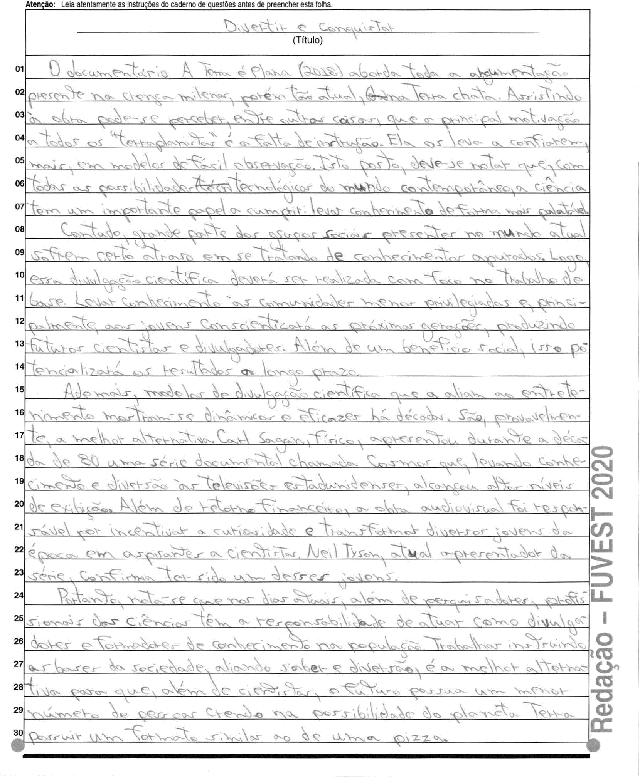 Atenção: Leia atentamente as instruções do caderno de questões antes de preencher esta folha.
Divertir e Conquistar
(Título)
01 O documentário A Terra é Plana (2018) aborda toda a argumentação
02 presente na crença milenar, porém tão atual, na Terra chata. Assistindo
03 à obra pode-se perceber, entre outras coisas, que a principal motivação
04 a todos os "terraplanistas" é a falta de instrução. Ela os leva a confiarem,
05 mais, em modelos de fácil observação. Isto posto, deve-se notar que, com
06 todas as possibilidades tecnológicas do mundo contemporâneo, a ciência
07 tem um importante papel a cumprir: levar conhecimento de forma mais palatável
08 Contudo, grande parte dos grupos sociais presentes no mundo atual
09 sofrem certo atraso em se tratando de conhecimentos apurados. Logo,
10 essa divulgação científica deverá ser realizada com foco no trabalho de
11 base. Levar conhecimento às comunidades menos privilegiadas e, princi-
12 palmente, aos jovens conscientizará as próximas gerações, produzindo
13 futuros cientistas e divulgadores. Além de um benefício social, isso po
14 tencializará os resultados a longo prazo.
15 Ademais, modelos de divulgação científica que a aliam ao entrete-
16 nimento mostram-se dinâmicos e eficazes há décadas. São, provavelmen-
17 te, a melhor alternativa. Carl Sagan, físico, apresentou durante a déca
18 da de 80 uma série documental chamada Cosmos que, levando conhe-
19 cimento e diversão às televisões estadunidenses, alcançou altos níveis
20 de exibição. Além de retorno financeiro, a obra audiovisual foi respon-
21 sável por incentivar a curiosidade e transformar diversos jovens da
22 época em aspirantes a cientistas. Neil Tyson, atual apresentador da
23 série, confirma ter sido um desses jovens.
24 Portanto, nota-se que nos dias atuais, além de pesquisadores, profis
25 sionais das ciências têm a responsabilidade de atuar como divulga
26 dores e formadores de conhecimento na população. Trabalhar instruindo
27 as bases da sociedade, aliando saber e diversão, é a melhor alterna
28 tiva para que, além de cientistas, o futuro possua um menor
29 número de pessoas crendo na possibilidade do planeta Terra
30 possuir um formato similar ao de uma pizza.
Redação – FUVEST 2020